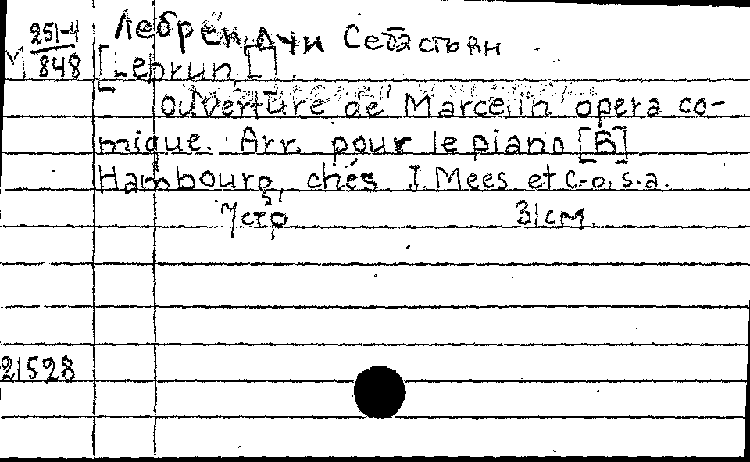 251-4 Лебрён, Луи Себастьян
V 848 [Lebrun L]
ouverture de Marcelin opera co-
mique. Arr. pour le piano [B]
Hambourg, chés J. Mees et C-o, s.a.
7 стр 31 см.
21528